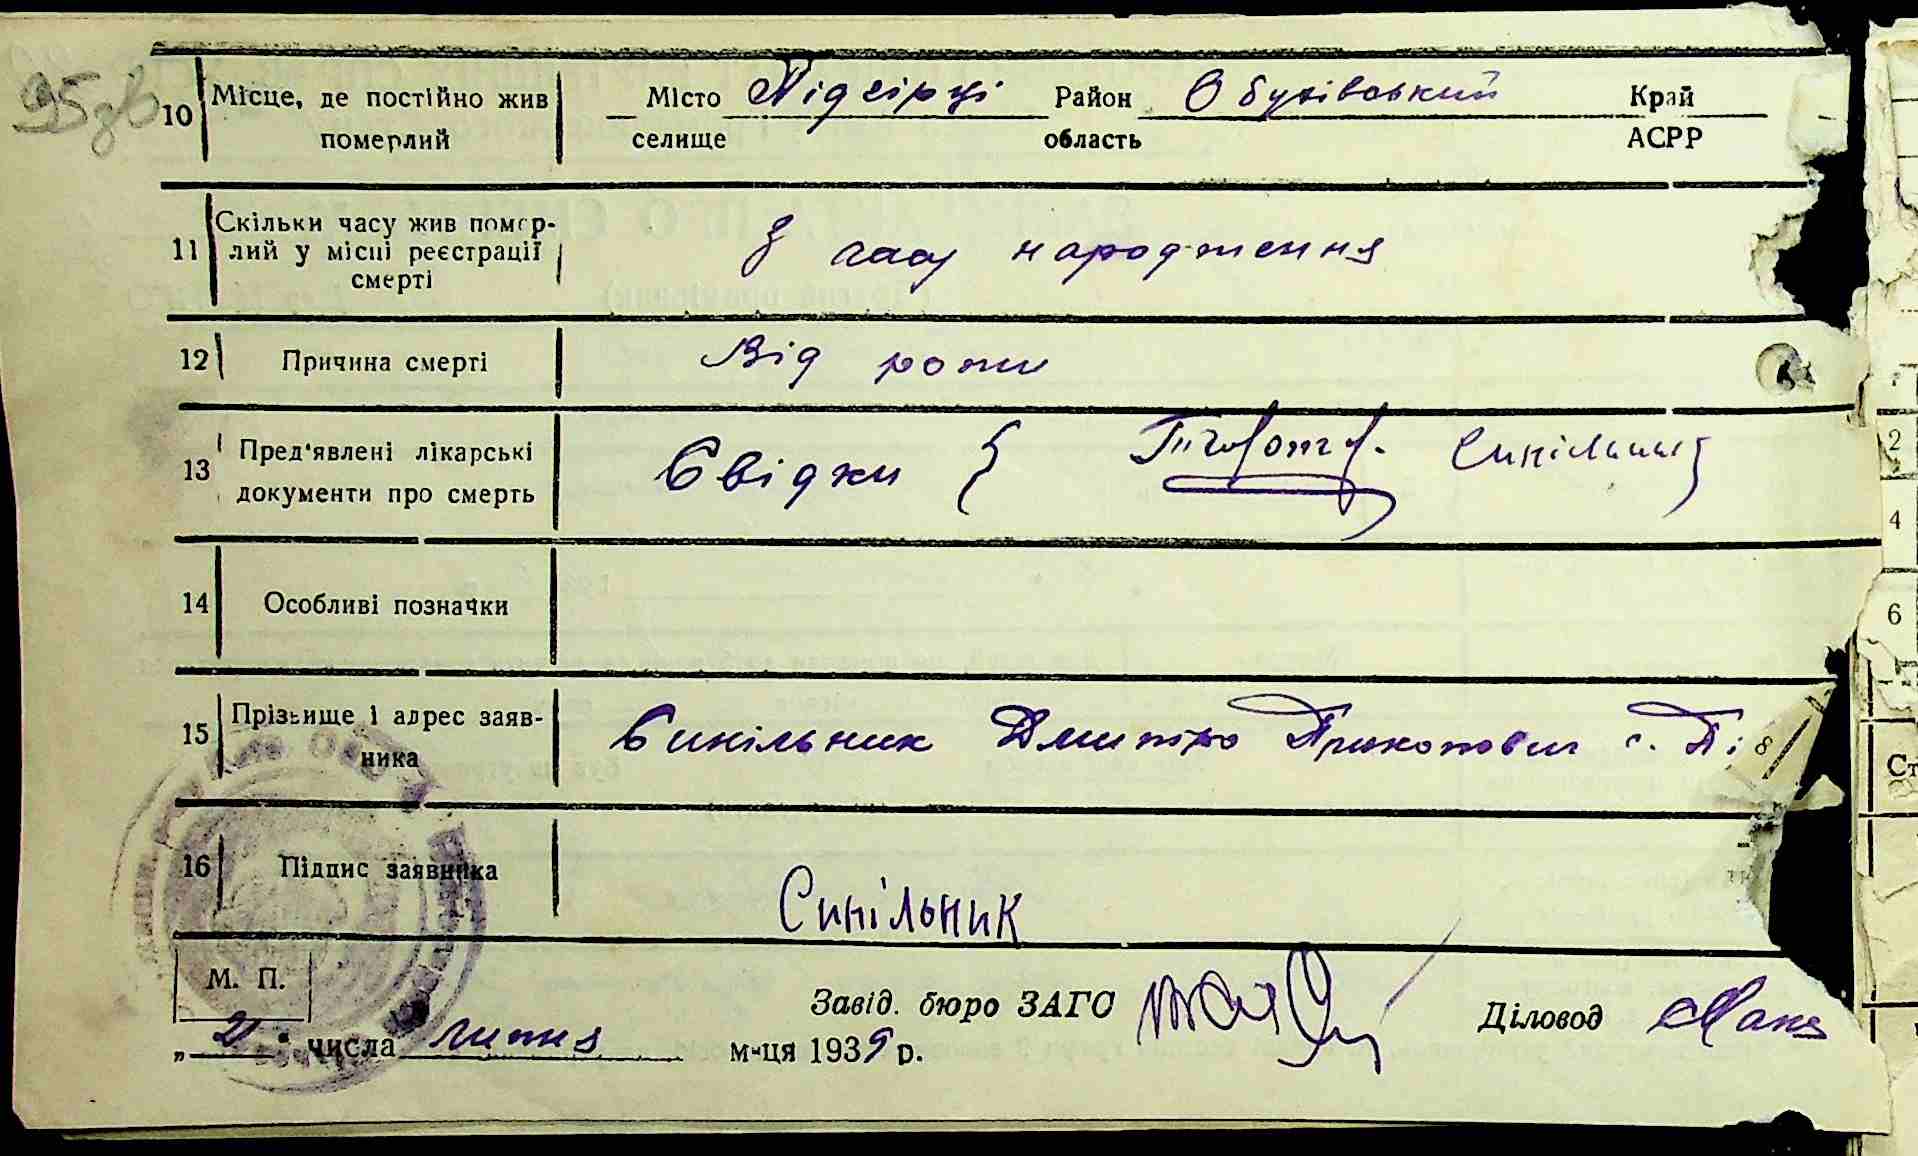 95 зв
10 Місце, де постійно жив померлий Місто селище Підгірці Район область Обухівський Край АСРР
11 Скільки часу жив померлий у місці реєстрації смерті З часу народження
12 Причина смерті Від рожи
13 Пред'явлені лікарські документи про смерть Свідки {
14 Особливі позначки
15 Прізвище і адрес заявника Синільник Дмитро Прокопович с. Пі
16 Підпис заявника Синільник
М. П. Завід. бюро ЗАГС Діловод
„ 21 " числа липня м-ця 1939 р.
2
4
6
8
Ст